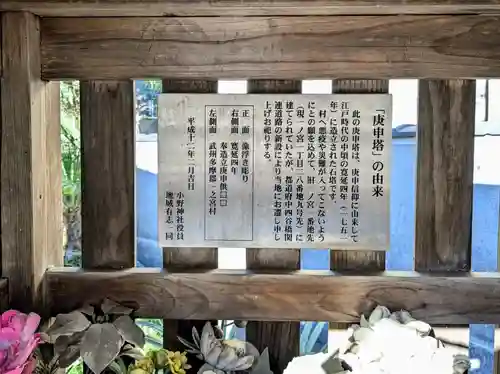 「庚申塔」の由来
此の庚申塔は、庚申信仰に由来して
江戸時代の中頃の寛延四年（一七五一
年）に造立された石塔です。
「村に悪疫や災難が入ってこないよう
に」との願を込めて、旧一ノ宮一番地先
（現一ノ宮一丁目二八番地九号先）に
建てられていたが、都道府中四谷橋関
連道路の新設により当地にお遷し申し
上げお祀りする。
正　面　像浮き彫り
右側面　寛延四年
奉造立庚申供□□
左側面　武州多摩郡一之宮村
平成十二年二月吉日
小野神社役員
地域有志一同